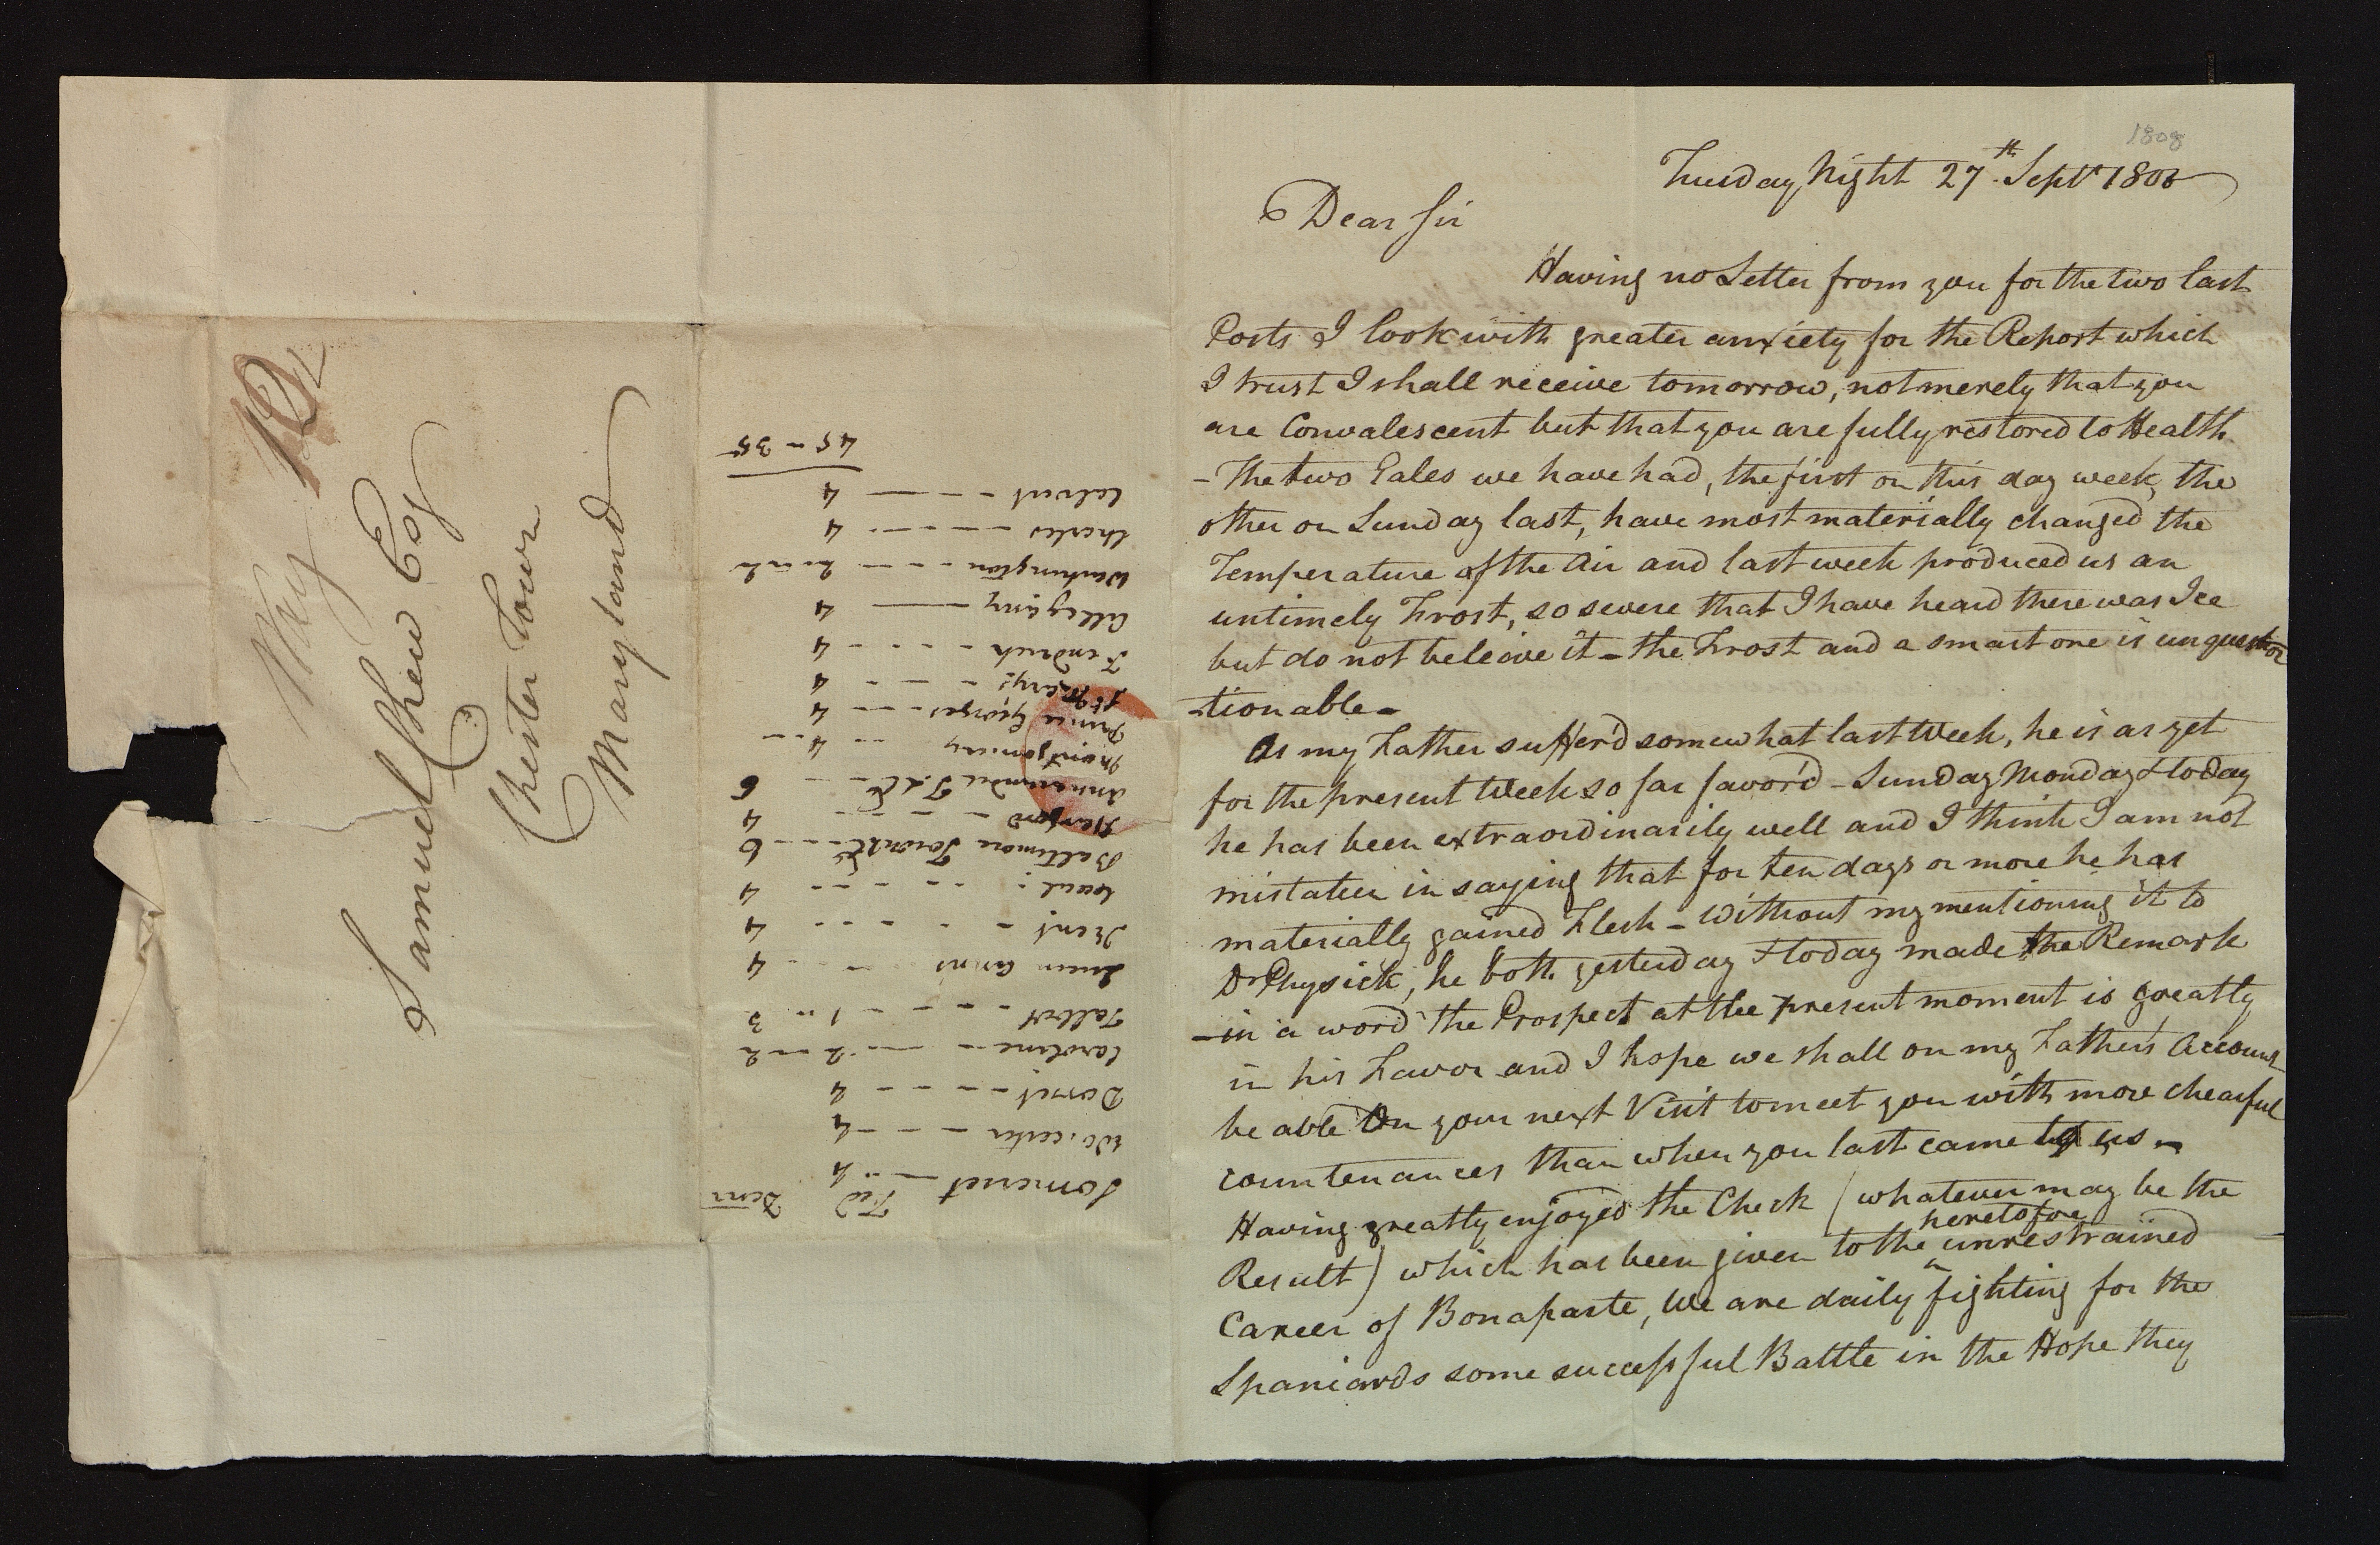 Way 12
Samuel Chew Esq
Chester Town
Maryland
Fed Dem
Somerset - - 4
Worcester - - - 4
Dorset - - - - 4
Caroline - - - 2 - 2
Talbot - - - - 1 - 3
Queen Anns - - 4
Kent - - - - - 4
Cecil : - - - - 4
Baltimore Town & Cy - - - 6
Harford - - - - 4
Annarundel T. & Cy - - 6
Montgomery - - 4 -
Prince Georges - - - 4
St Marys - - - 4
Fredrick - - - - 4
Allegany - - 4
Washington - - - 2 - 2
Charles - - - - 4
Calvert - - - - 4
45 - 35
1808
Tuesday Night 27th. Sept. 1808
Dear Sir
Having no Letter from you for the two last
Posts I look with greater anxiety for the Report which
I trust I shall receive tomorrow, not merely that you
are Convalescent but that you are fully restored to Health.
- The two Gales we have had, the first on this day week, the
other on Sunday last, have most materially changed the
Temperature of the Air and last week produced us an
untimely Frost, so severe that I have heard there was Ice
but do not beleive it - the Frost and a smart one is unques
-tionable -
As my Father suffer'd somewhat last Week, he is as yet
for the present Week so far favor'd - Sunday Monday & today
he has been extraordinarily well and I think I am not
mistaken in saying that for ten days or more he has
materially gained Flesh - Without my mentioning it to
Dr Physick, he both yesterday & today made the Remark
- in a word the Prospect at the present moment is greatly
in his Favor and I hope we shall on my Father's Account
be able on your next Visit to meet you with more chearful
countenances than when you last came to us -
Having greatly enjoyed the Check (whatever may be the
heretofore
Result) which has been given to the ^ unrestrained
Career of Bonaparte, We are daily fighting for the
Spaniards some successful Battle in the Hope they